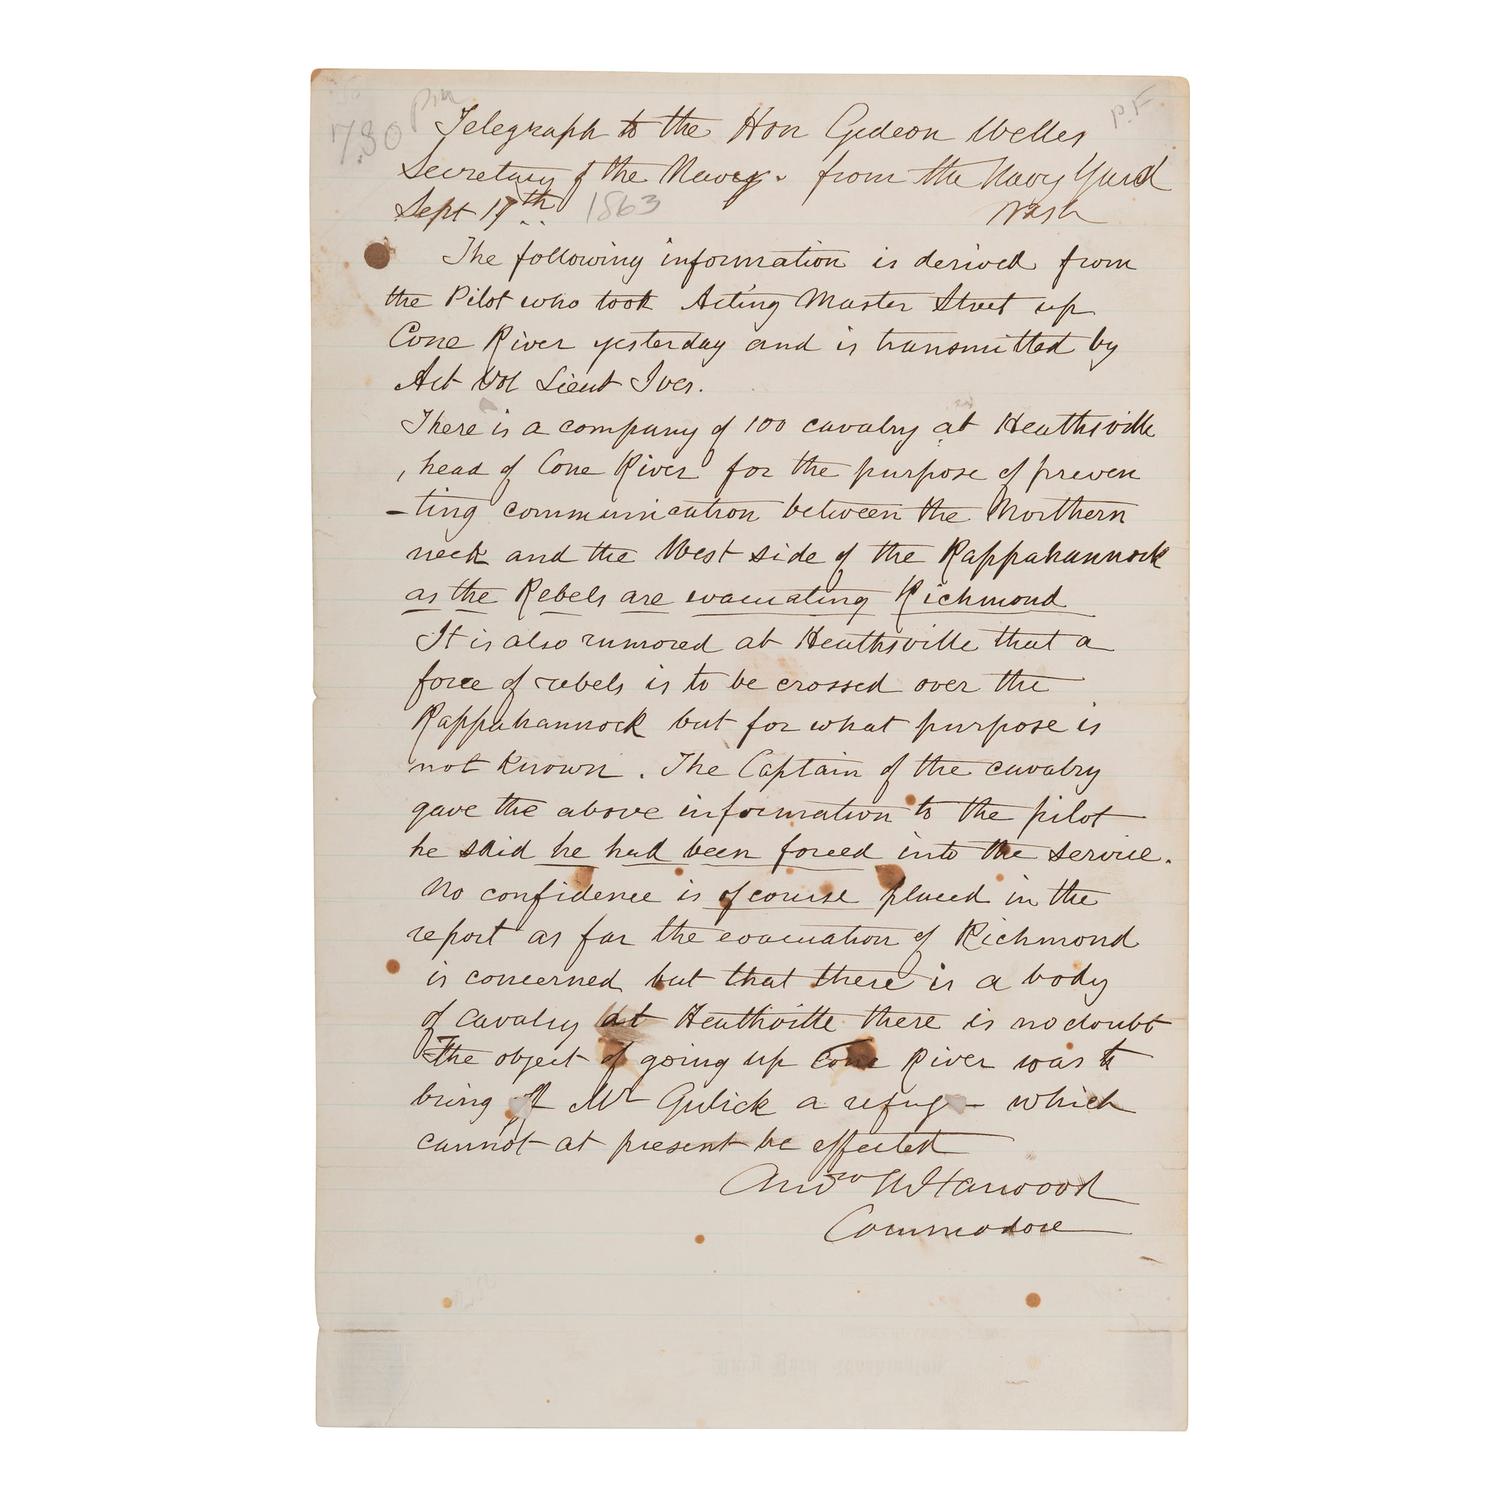 7.30 Pm
P.F
Telegraph to the Hon Gideon Welles
Secretary of the Navy. from the Navy Yard
Sept 17th 1863 Wash
The following information is derived from
the Pilot who took Acting Master Street up
Cone River yesterday and is transmitted by
Act Vol Lieut Ives.
There is a company of 100 cavalry at Heathsville
, head of Cone River for the purpose of preven
-ting communication between the Northern
neck and the West side of the Rappahannock
as the Rebels are evacuating Richmond
It is also rumored at Heathsville that a
force of rebels is to be crossed over the
Rappahannock but for what purpose is
not known. The Captain of the cavalry
gave the above information to the pilot
he said he had been forced into the service.
No confidence is of course placed in the
report as far the evacuation of Richmond
is concerned but that there is a body
of cavalry at Heathville there is no doubt
The object of going up Cone River was to
bring off Mr Gulick a refug- which
cannot at present be effected
Andw A Harwood
Commodore